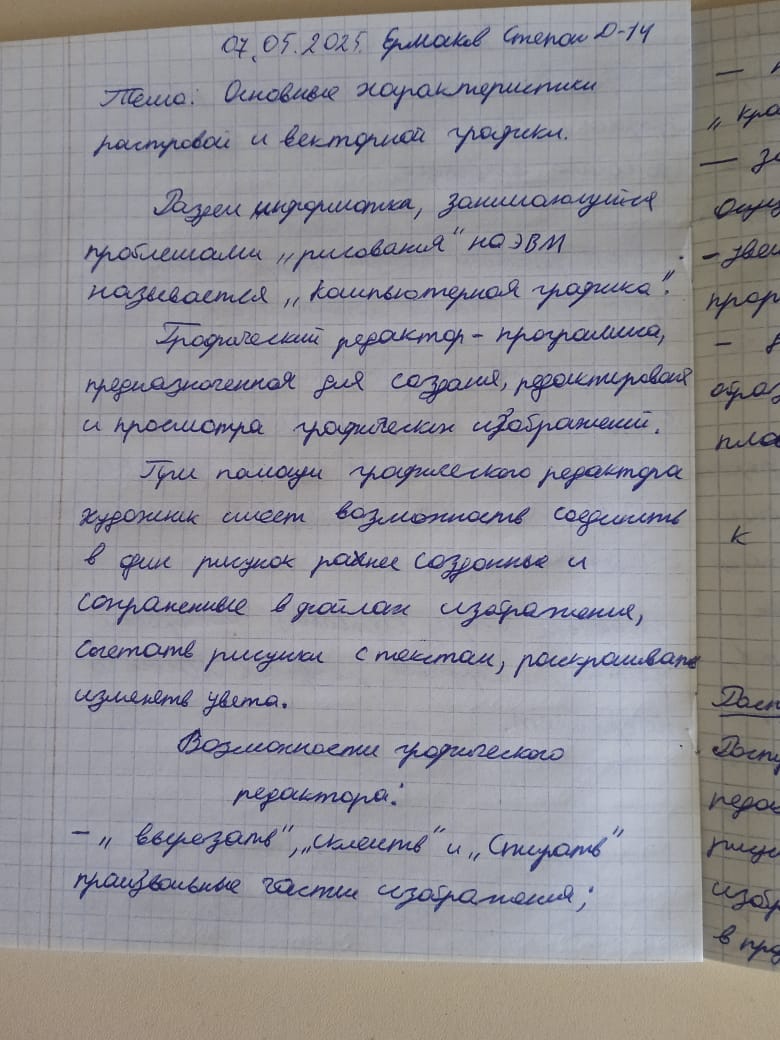 07.05.2025. Ермаков Степан Д-14
Тема: Основные характеристики
растровой и векторной графики.
Раздел информатика, занимающуйся
проблемами „рисования" на ЭВМ
называется „Компьютерная графика".
Графический редактор - программа,
предназначенная для создания, редактирования
и просмотра графических изображений.
При помощи графического редактора
художник имеет возможность соединить
в один рисунок ранее созданные и
сохраненные в файлах изображения,
сочетать рисунки с текстам, раскрашивать
изменять цвета.
Возможности графического
редактора:
- „вырезать", „склеить" и „Стирать"
произвольные части изображения;
—
„кра
— за
- уве
прор
-
образ
пла
к
Дост
Досту
редак
рису
изобр
в про